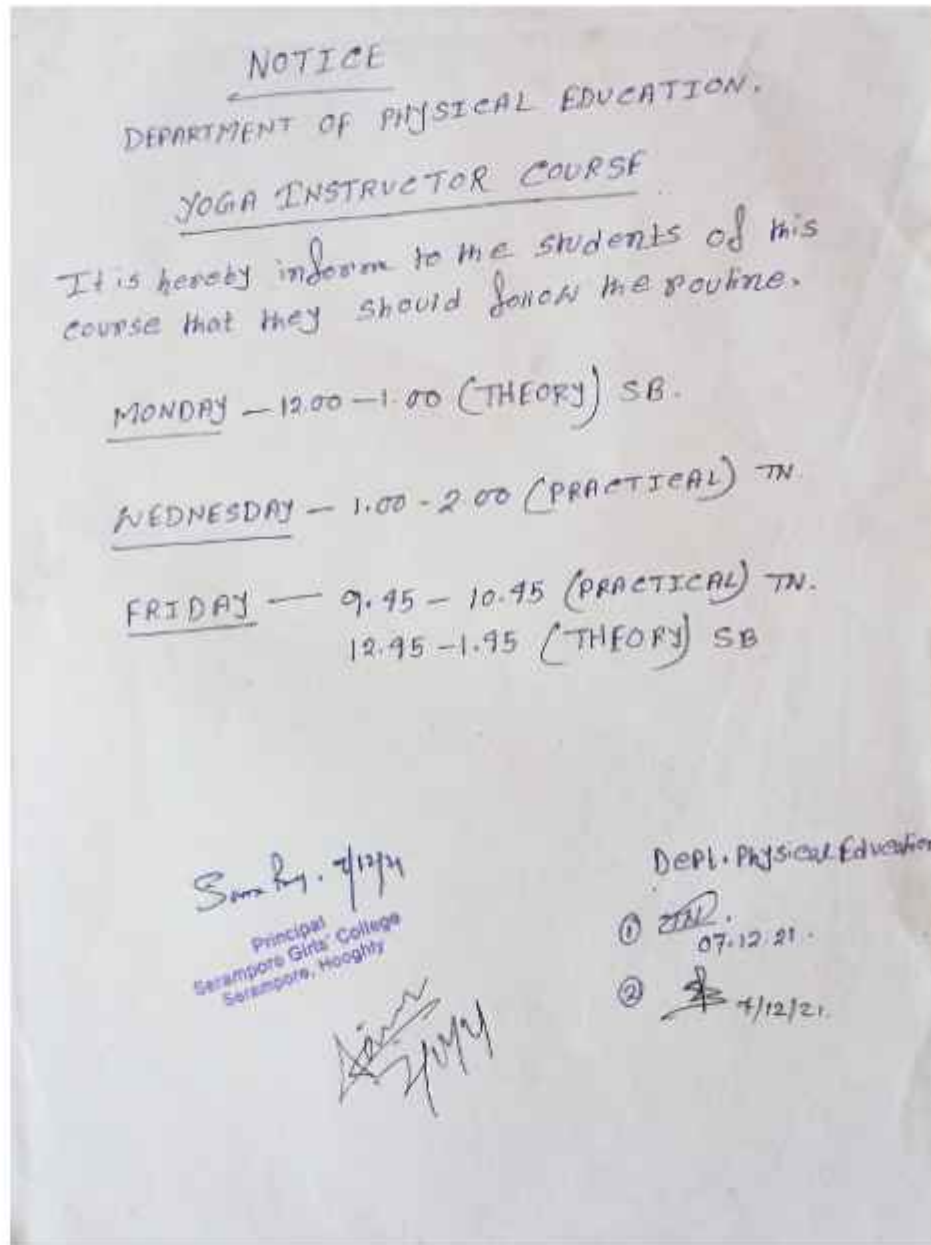 NOTICE
DEPARTMENT OF PHYSICAL EDUCATION.
YOGA INSTRUCTOR COURSE
It is hereby inform to the students of this
course that they should follow the routine.
MONDAY — 12.00 — 1.00 (THEORY) SB.
WEDNESDAY — 1.00 - 2.00 (PRACTICAL) TN.
FRIDAY — 9.45 — 10.45 (PRACTICAL) TN.
12.45 — 1.45 (THEORY) SB
7/12/21
Principal
Serampore Girls' College
Serampore, Hooghly
Dept. Physical Education
① TN.
07.12.21.
② SB 7/12/21.